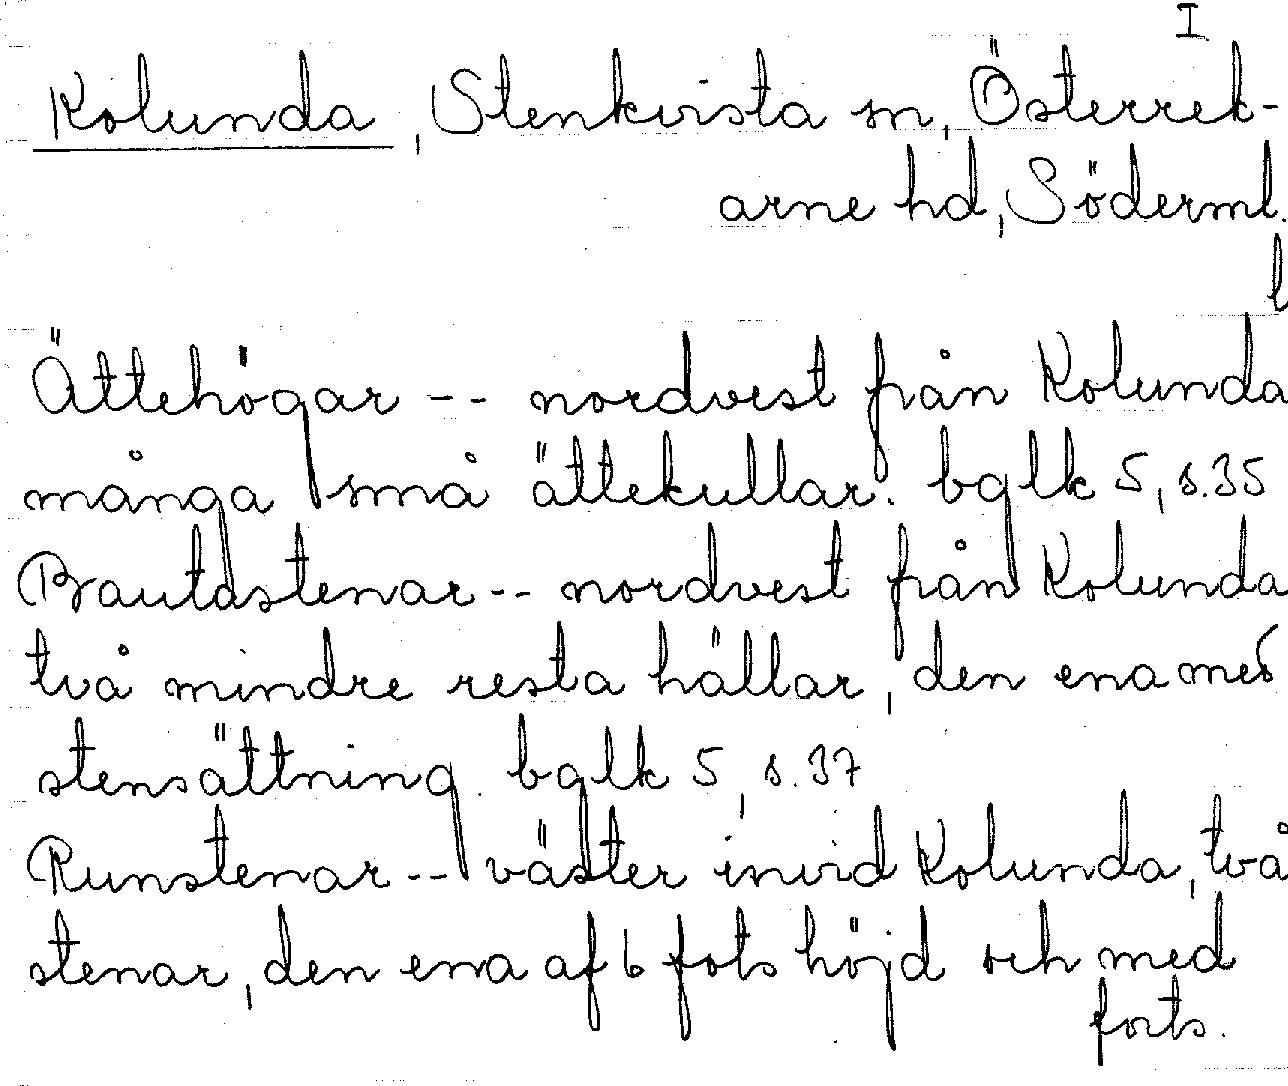 I
Kolunda, Stenkvista sn, Österrek-
arne hd, Söderml.
l
Ättehögar -- nordvest från Kolunda
många små ättekullar. bglk 5, s.35
Bautastenar -- nordvest från Kolunda
två mindre resta hällar, den ena med
stensättning. bglk 5, s.37
Runstenar -- väster invid Kolunda, två
stenar, den ena af 6 fots höjd och med
forts.